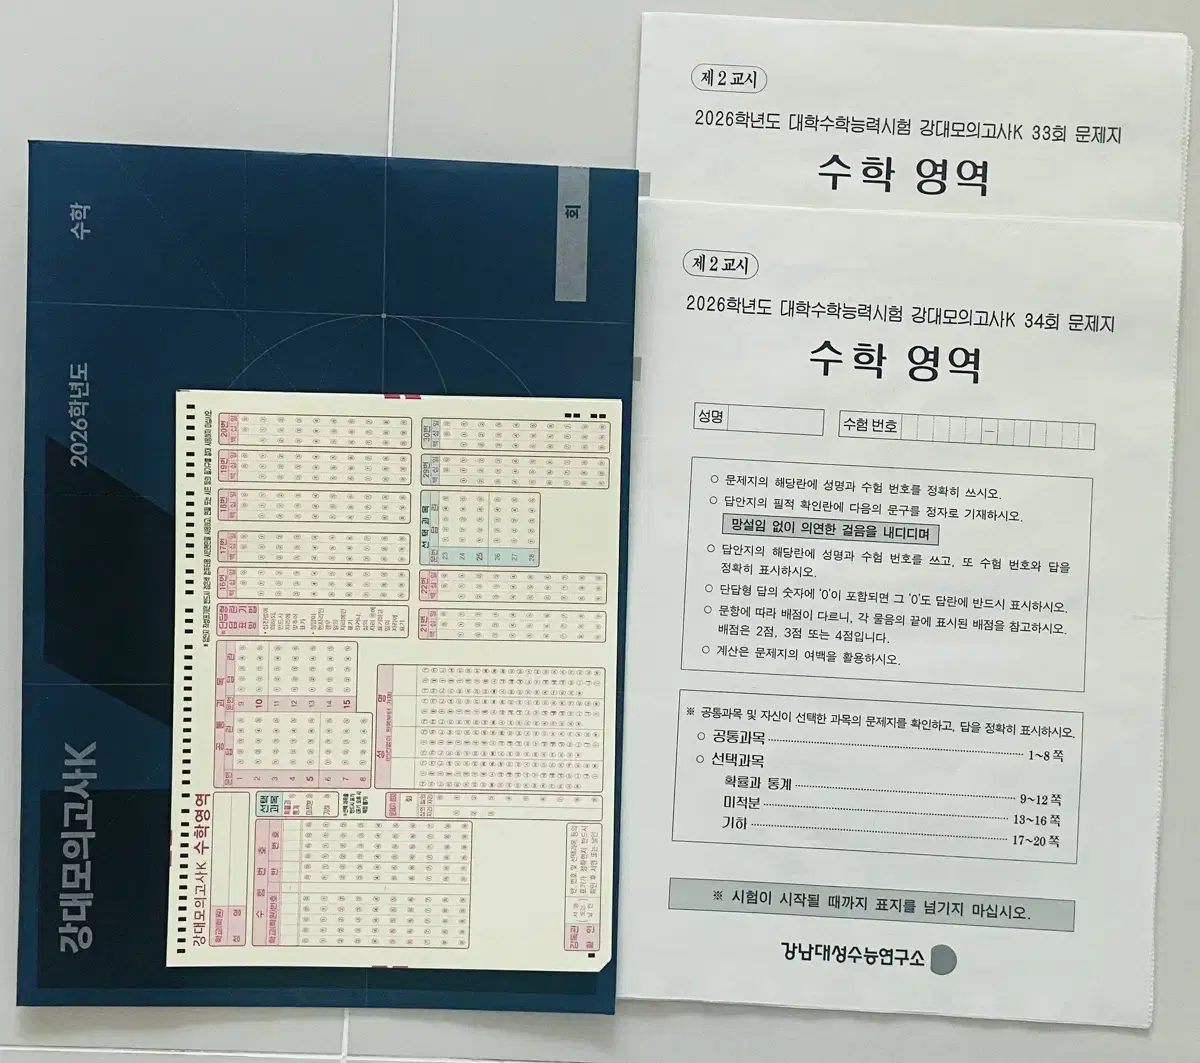 제2교시
2026학년도 대학수학능력시험 강대모의고사K 33회 문제지
수학 영역
제2교시
2026학년도 대학수학능력시험 강대모의고사K 34회 문제지
수학 영역
성명
수험 번호
–
○ 문제지의 해당란에 성명과 수험 번호를 정확히 쓰시오.
○ 답안지의 필적 확인란에 다음의 문구를 정자로 기재하시오.
망설임 없이 의연한 걸음을 내디디며
○ 답안지의 해당란에 성명과 수험 번호를 쓰고, 또 수험 번호와 답을
정확히 표시하시오.
○ 단답형 답의 숫자에 '0'이 포함되면 그 '0'도 답란에 반드시 표시하시오.
○ 문항에 따라 배점이 다르니, 각 물음의 끝에 표시된 배점을 참고하시오.
배점은 2점, 3점 또는 4점입니다.
○ 계산은 문제지의 여백을 활용하시오.
※ 공통과목 및 자신이 선택한 과목의 문제지를 확인하고, 답을 정확히 표시하시오.
○ 공통과목 1~8 쪽
○ 선택과목
확률과 통계 9~12 쪽
미적분 13~16 쪽
기하 17~20 쪽
※ 시험이 시작될 때까지 표지를 넘기지 마십시오.
강남대성수능연구소
강대모의고사K
2026학년도
수학
회
강대모의고사K 수학영역
성 명
수 험 번 호
선택
과목
공 통 과 목
문번
답 란
1
2
3
4
5
6
7
8
문번
답 란
9
10
11
12
13
14
15
16번
17번
18번
19번
20번
21번
22번
선 택 과 목
문번
답 란
23
24
25
26
27
28
29번
30번